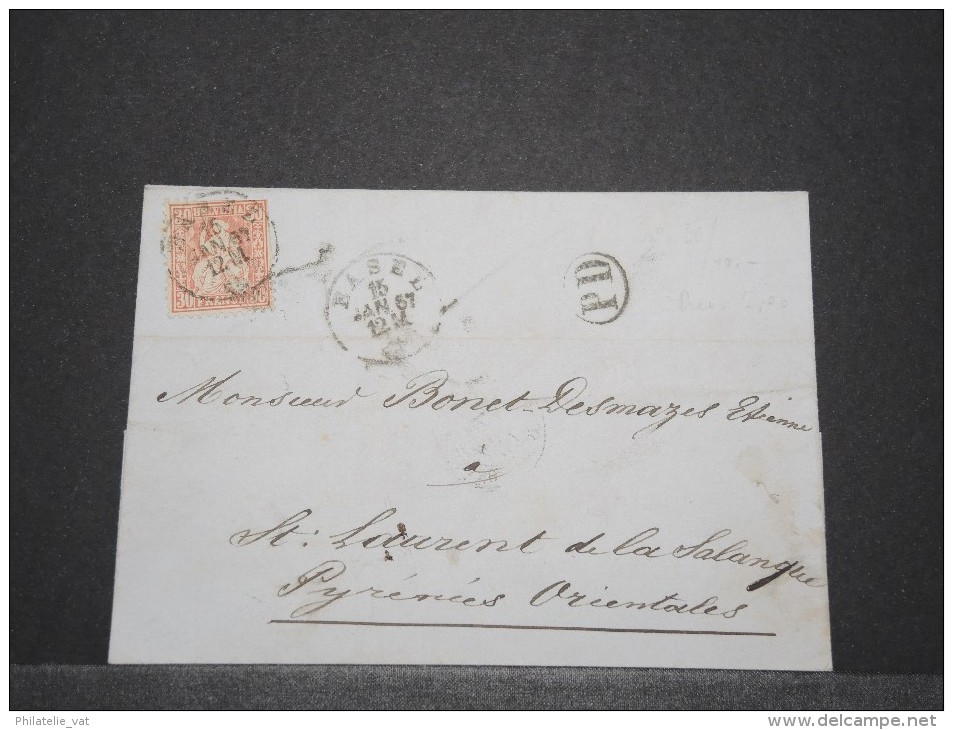 30 HELVETIA 30
BASEL
15
JAN 67
12 M
30 FRANCO C.
BASEL
15
JAN 67
12 M
PD
Monsieur Bonet-Desmazes Etienne
a
St: Laurent de la Salanque
Pyrénées Orientales
Philatelie_vat
http://www.delcampe.net